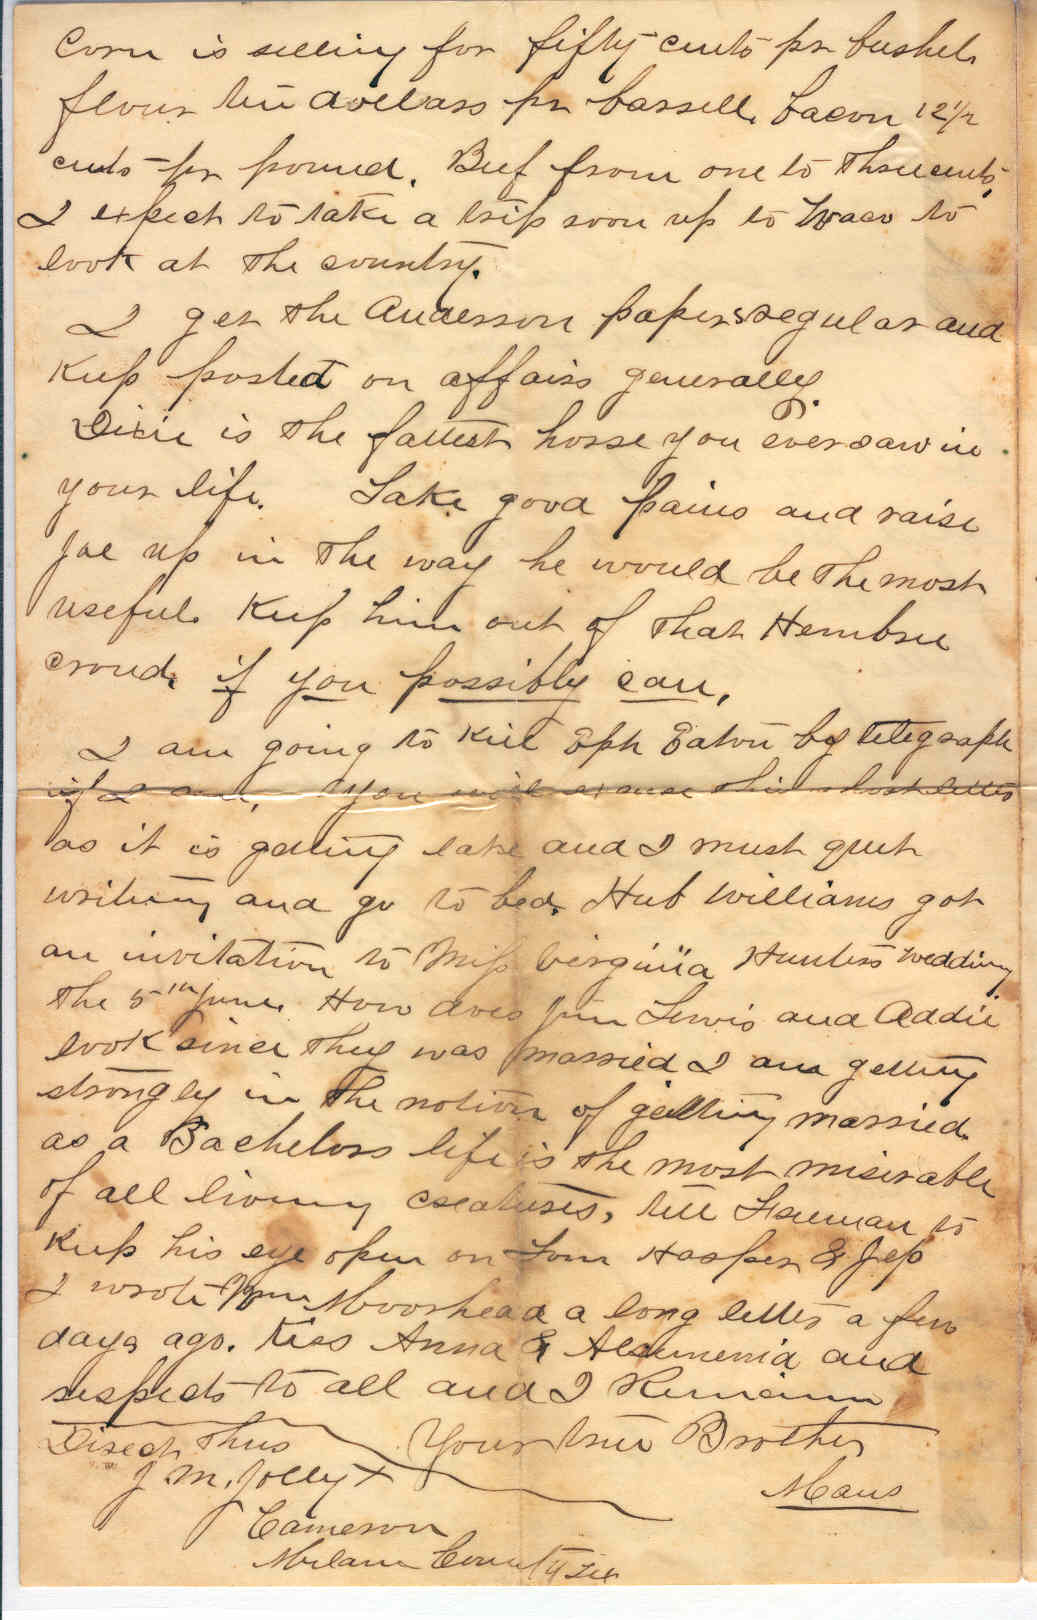 Corn is selling for fifty cents pr bushel.
flour ten dollars pr barrell, bacon 12½
cents pr pound. Beef from one to three cents.
I expect to take a trip soon up to Waco to
look at the country.
I get the Anderson papers regular and
Keep posted on affairs generally.
Dixie is the fattest horse you ever saw in
your life. Take good pains and raise
Joe up in the way he would be the most
useful. Keep him out of that Hembree
croud, if you possibly can,
I am going to kill Eph Eaton by telegraph
if I can. You will excuse this short letter
as it is getting late and I must quit
writing and go to bed. Hub Williams got
an invitation to Miss Virginia Hunters wedding
the 5th June. How does Jim Lewis and Addie
look since they was married I am getting
strongly in the notion of getting married.
as a Bachelors life is the most miserable
of all living creatures, tell Freeman to
Keep his eye open on Tom Harper & Jep
I wrote Wm Moorhead a long letter a few
days ago. Kiss Anna & Alcumenia and
respects to all and I Remain
Direct Thus Your true Brother
J. M. Jolly Mans
Cameron
Milam County Tex